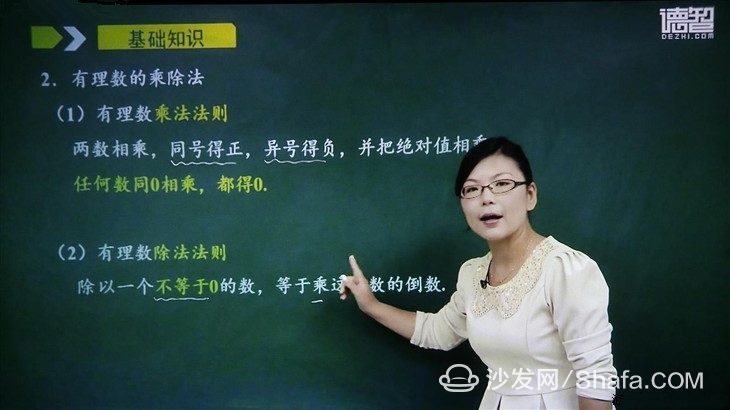 德智
DEZHI.COM
基础知识
2. 有理数的乘除法
(1)有理数乘法法则
两数相乘，同号得正，异号得负，并把绝对值相
任何数同0相乘，都得0.
(2)有理数除法法则
除以一个不等于0的数，等于乘 数的倒数.
沙发网/Shafa.com